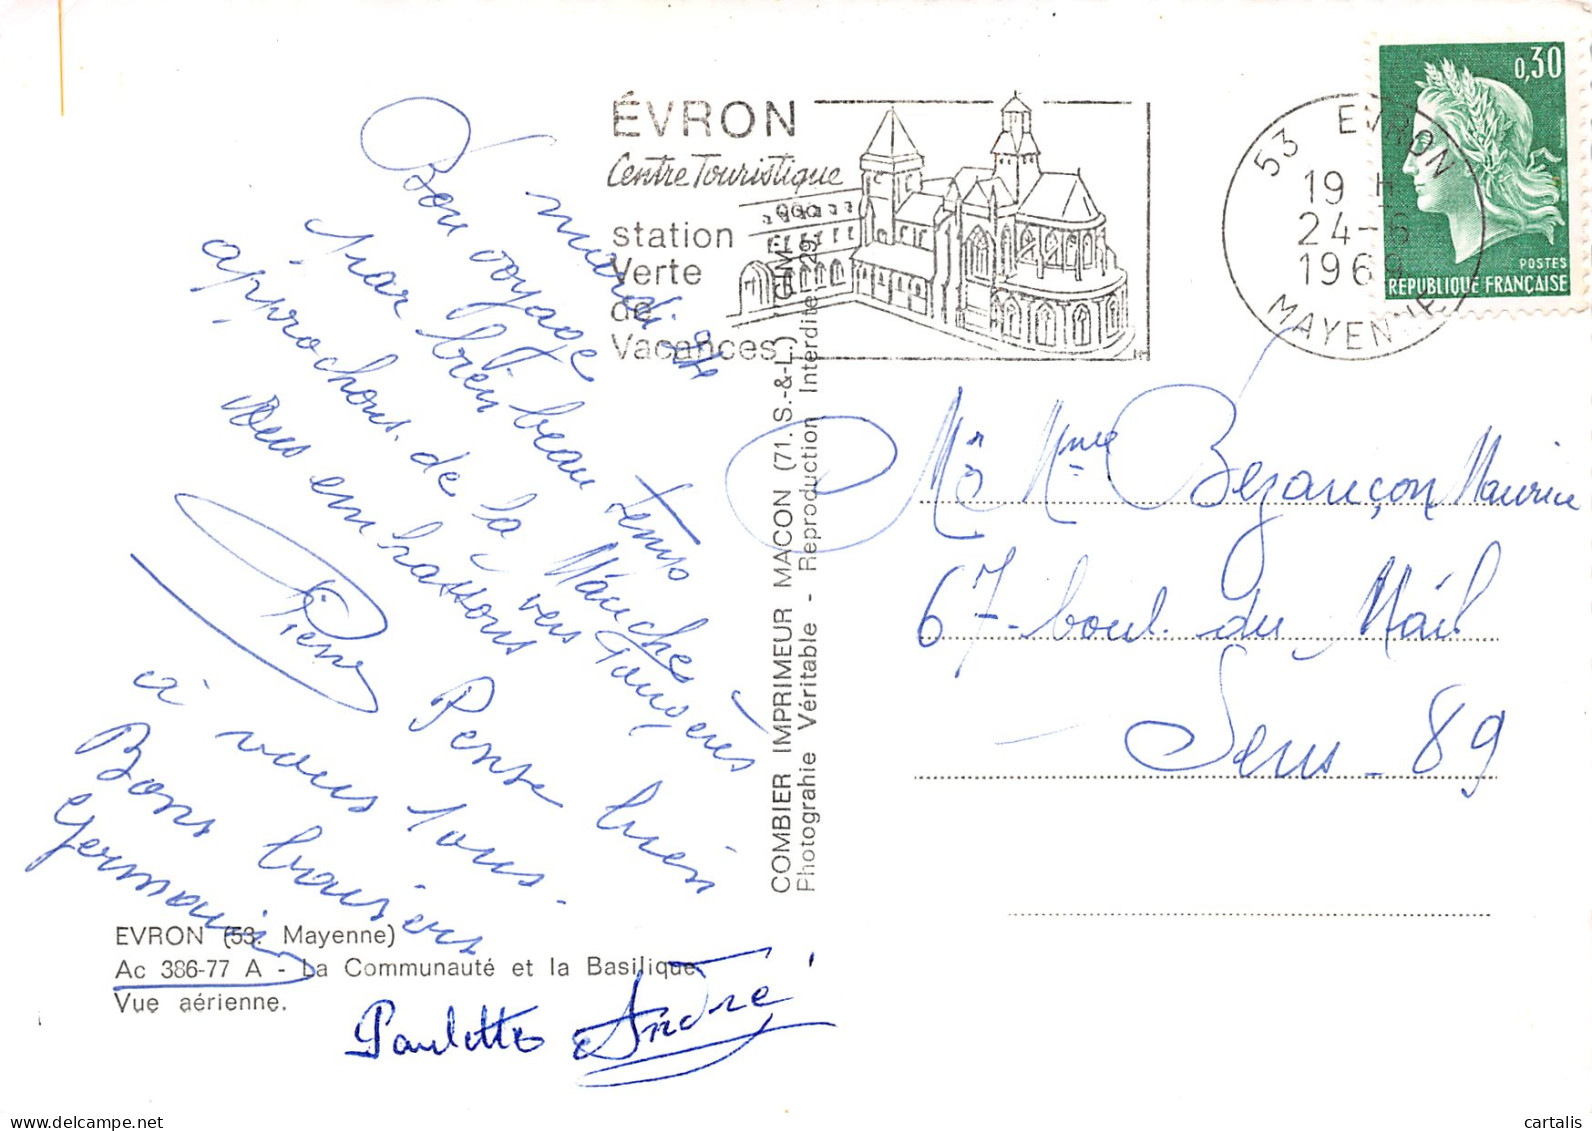 ÉVRON
Centre Touristique
station
Verte
de
Vacances
53 EVRON
19 H
24-6
1969
MAYENNE
0,30
POSTES
REPUBLIQUE FRANÇAISE
mardi
Bon voyage
par bien beau temps
approchons de la Manche
vers Fougères
vous embrassons
Pierre
Pense bien
à vous tous.
Bons baisers
Germaine
Paulette André
Mr Mme Bezançon Maurice
67 boul. du Mail
Sens - 89
COMBIER IMPRIMEUR MACON (71. S.-&-L.) CIM
Photograhie Véritable - Reproduction Interdite
EVRON (53. Mayenne)
Ac 386-77 A - La Communauté et la Basilique
Vue aérienne.
cartalis
delcampe.net